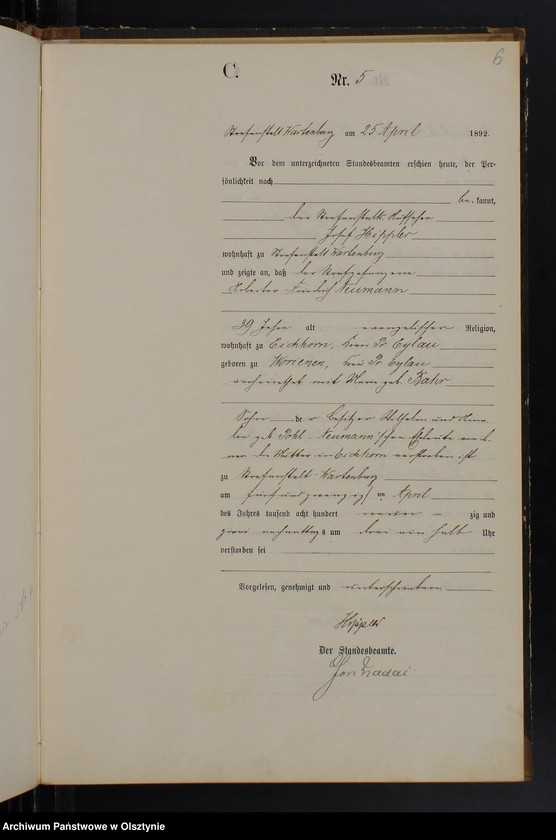 6
C.
Nr. 5
Strafanstalt Wartenburg am 25 April 1892.
Vor dem unterzeichneten Standesbeamten erschien heute, der Per-
sönlichkeit nach
be kannt,
der Strafanstalts Aufseher
Josef Hippler
wohnhaft zu Strafanstalt Wartenburg
und zeigte an, daß der Strafgefangene
Arbeiter Friedrich Neumann
39 Jahre alt evangelischer Religion,
wohnhaft zu Eichhorn, Kreis Pr Eylau
geboren zu Worienen, Kreis Pr Eylau
verheirathet mit Marie geb.
Sohn de r Besitzer Wilhelm und
geb Pohl Neumann'schen Eheleute von
die Mutter in Eichhorn verstorben ist
zu Strafanstalt Wartenburg
am fünf und zwanzigsten April
des Jahres tausend acht hundert neun zig und
zwei nachmittags um drei ein halb Uhr
verstorben sei
Vorgelesen, genehmigt und unterschrieben
Hippler
Der Standesbeamte.
Archiwum Państwowe w Olsztynie